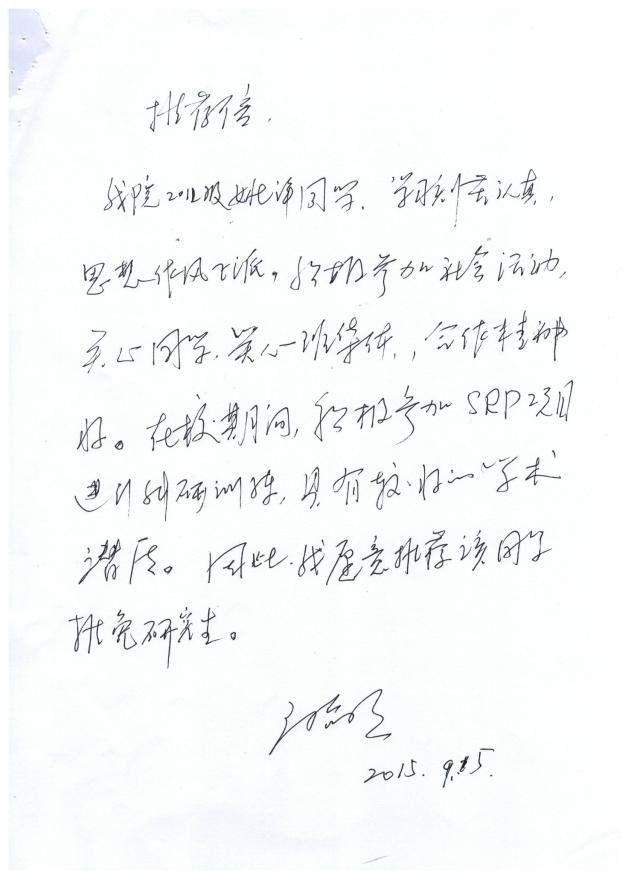 推荐信.
我院2012级姚泽同学.学习刻苦认真,
思想作风正派。积极参加社会活动,
关心同学.关心班集体,合作精神
好。在校期间,积极参加SRP项目
进行科研训练,具有较好的学术
潜质。因此.我愿意推荐该同学
推免研究生。
2015.9.15.